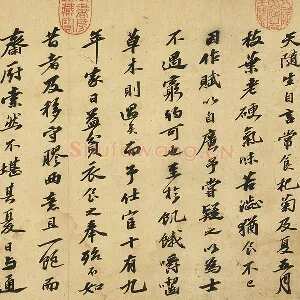 天隨生自言常食杞菊及夏五月
枝葉老硬氣味苦澀猶食不已
因作賦以自廣予嘗疑之以為士
不遇窮約可也至於飢餓嚼齧
草木則過矣而予仕宦十有九
年家日益貧衣食之奉殆不如
昔者及移守膠西意且一飽而
齋廚索然不堪其憂日與通